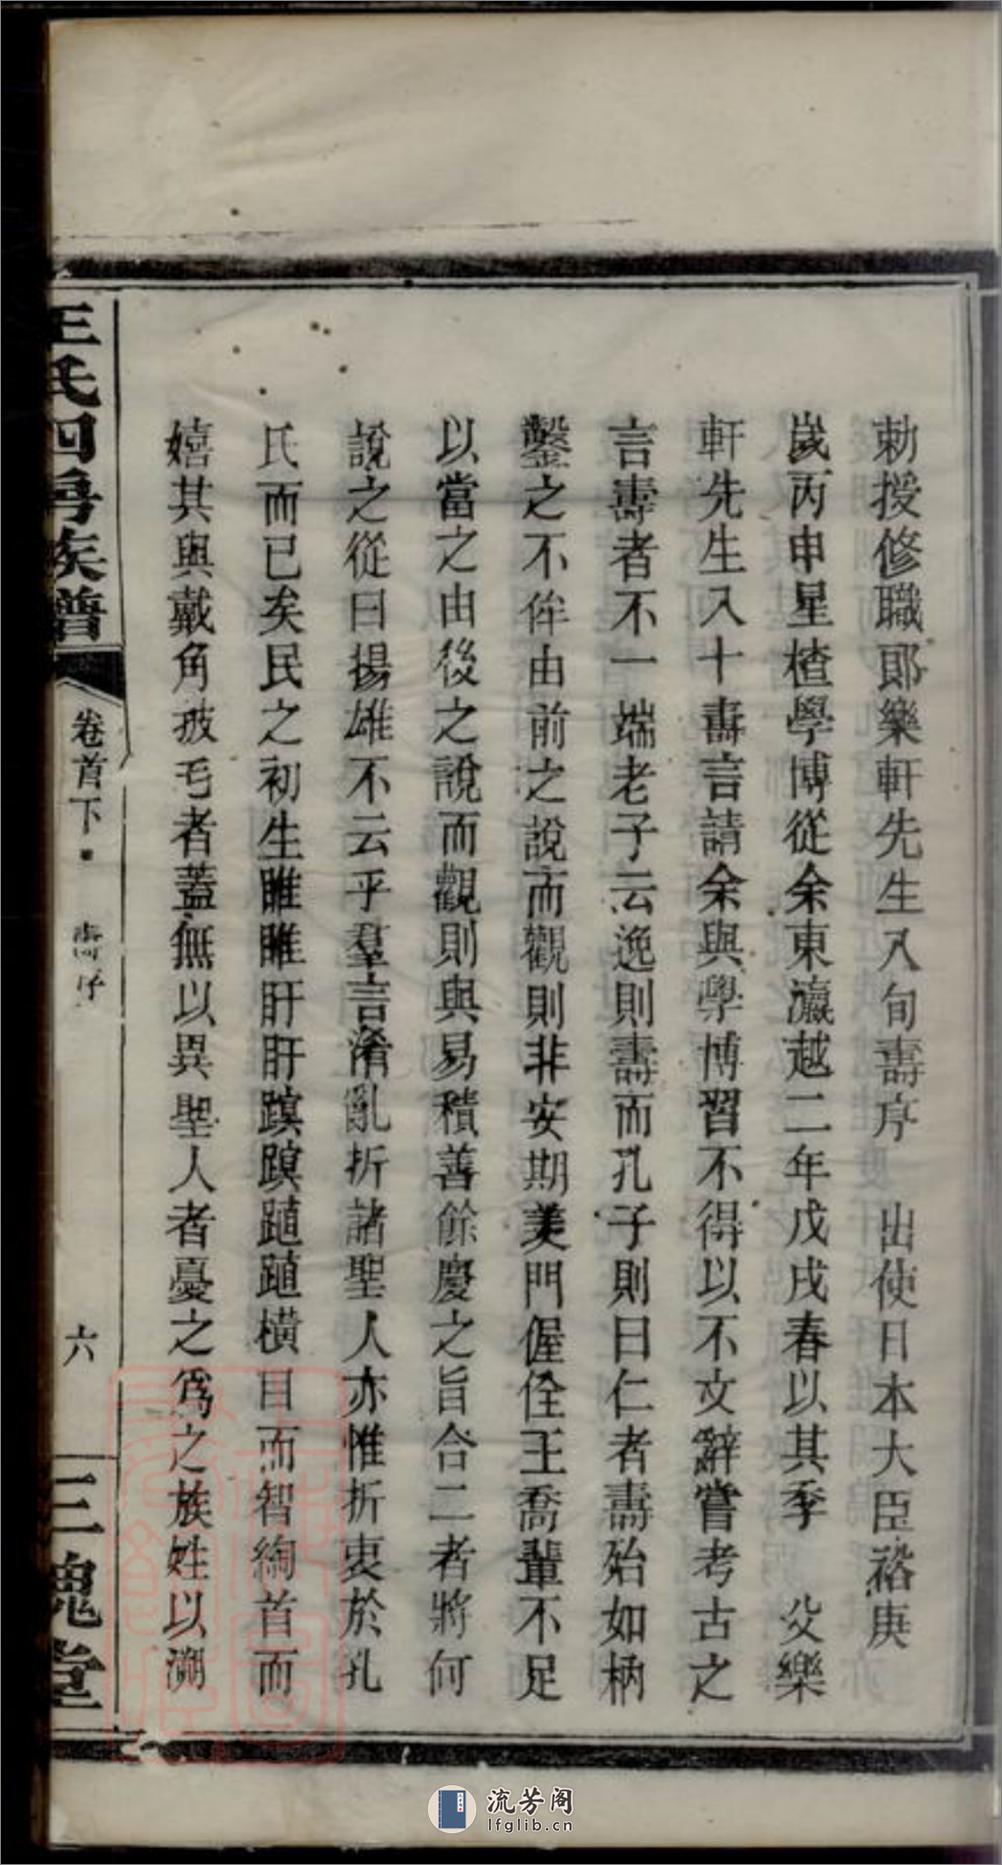 勅授修職郞樂軒先生八旬壽序　出使日本大臣裕庚
歲丙申星楂學博從余東瀛越二年戊戌春以其季　父樂
軒先生八十壽言請余與學博習不得以不文辭嘗考古之
言壽者不一端老子云逸則壽而孔子則曰仁者壽殆如枘
鑿之不侔由前之說而觀則非安期羨門偓佺王喬輩不足
以當之由後之說而觀則與易積善餘慶之旨合二者將何
說之從曰揚雄不云乎羣言淆亂折諸聖人亦惟折衷於孔
氏而已矣民之初生睢睢盱盱蹎蹎踣踣橫目而智綯首而
嬉其與戴角披毛者蓋無以異聖人者憂之爲之族姓以溯
王氏四房族譜
卷首下
壽序
六
三槐堂
流芳阁
lfglib.cn